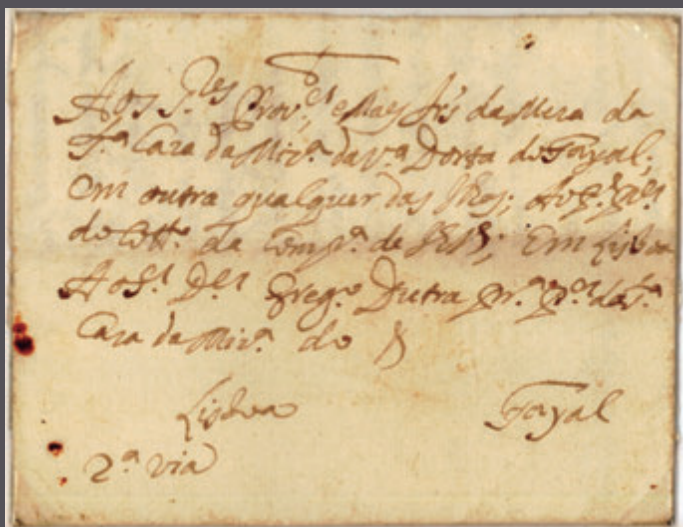 Aos S.res Prov.or e Mais Irs da Mera da
S.ta Caza da Miz.a da V.a Dorta do Fayal;
Em outra qualquer das Ilhas; Ao
do Coll.o da Comp.a de Ihs; Em Lisboa
Ao S.r D.or Greg.o Dutra da S.ta
Caza da Miz.a do
Lisboa Fayal
2.a via